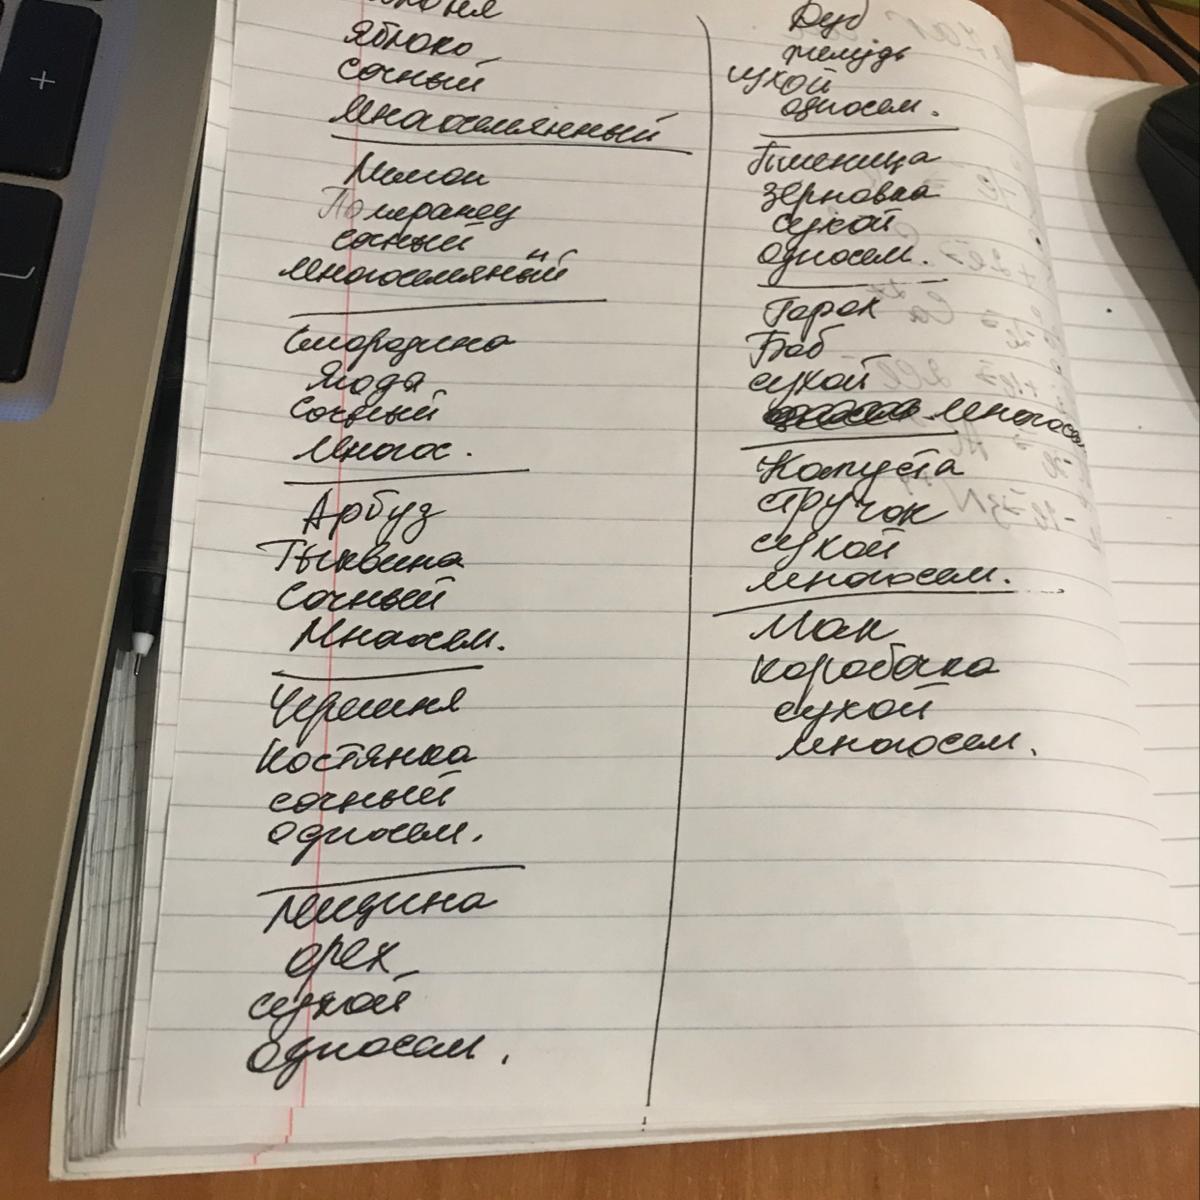 Яблоко
сочный
многосемянный
Лимон
Померанец
сочный
многосемянный
Смородина
Ягода
Сочный
многос.
Арбуз
Тыквина
Сочный
Многосем.
Черешня
Костянка
сочный
односем.
Лещина
орех
сухой
односем.
Дуб
желудь
сухой
односем.
Пшеница
зерновка
сухой
односем.
Горох
Боб
сухой
многосем
Капуста
стручок
сухой
многосем.
Мак
коробочка
сухой
многосем.